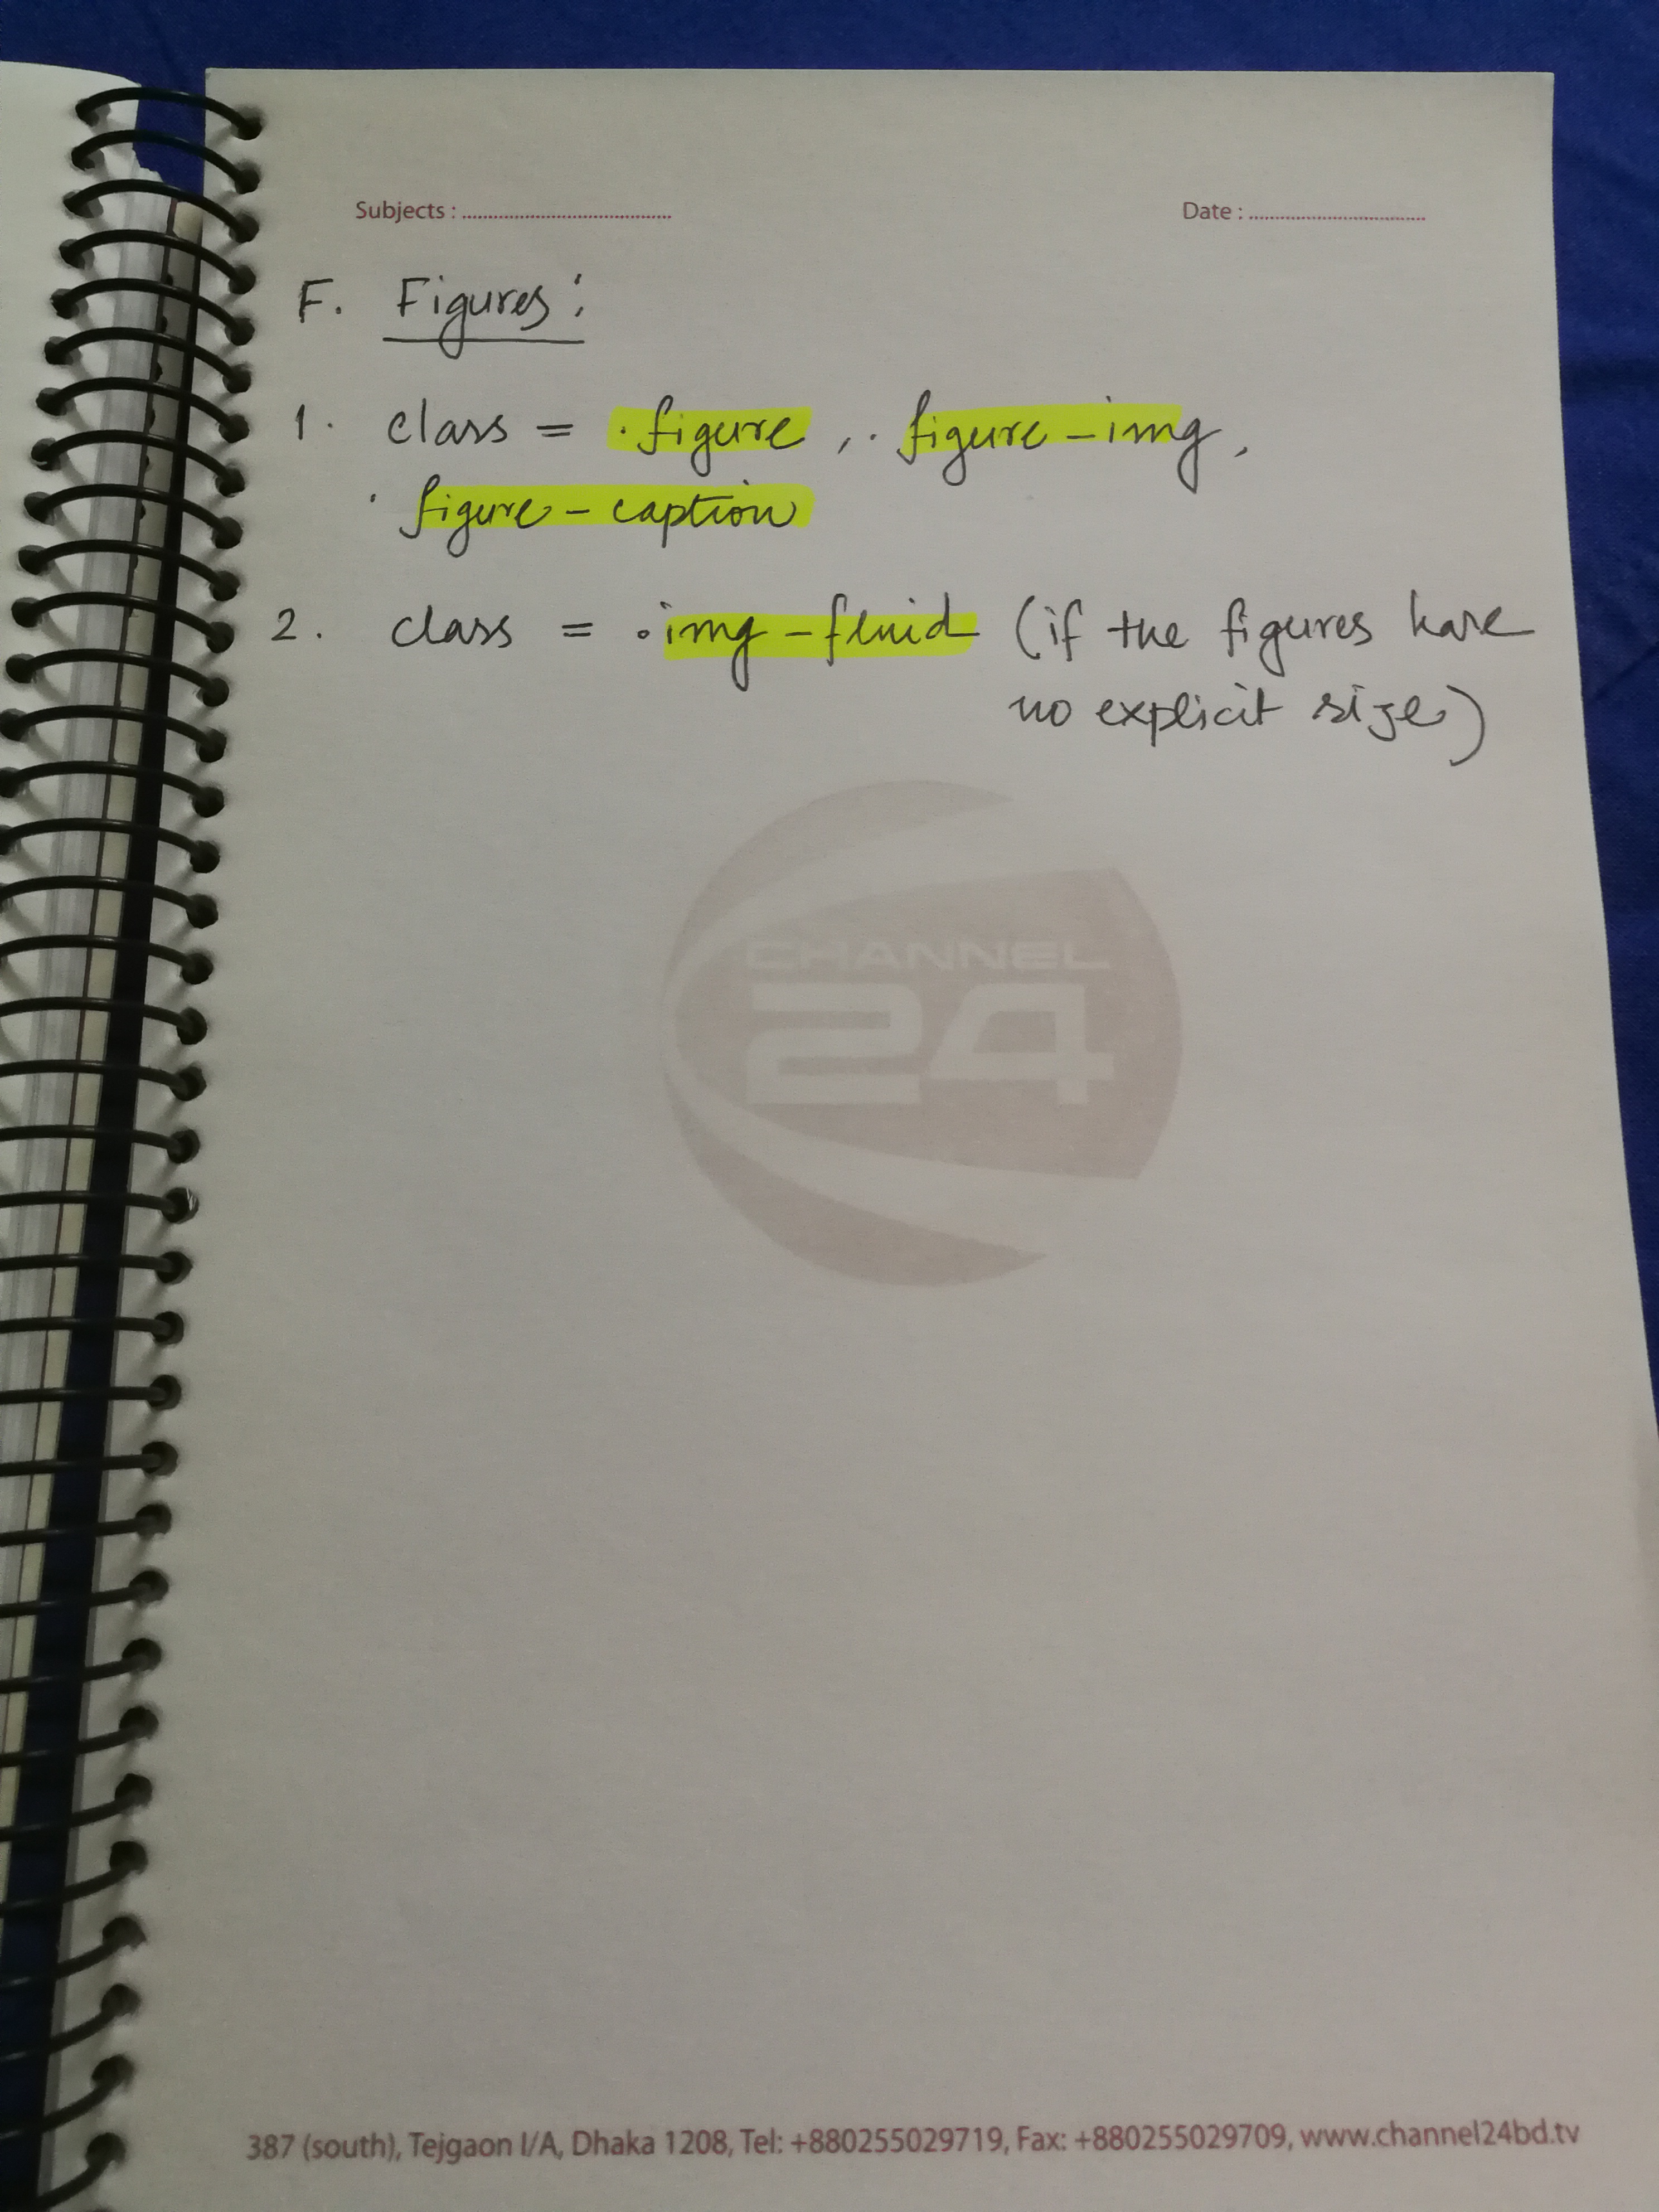 Subjects : ........................................ Date : ..................................
F. Figures :
1. class = .figure, .figure-img,
.figure-caption
2. class = .img-fluid (if the figures have
no explicit size)
CHANNEL
24
387 (south), Tejgaon I/A, Dhaka 1208, Tel: +880255029719, Fax: +880255029709, www.channel24bd.tv